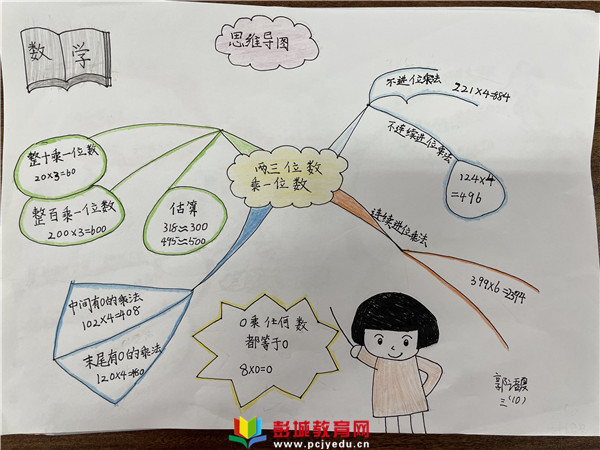 数学
思维导图
两三位数
乘一位数
整十乘一位数
20×3=60
整百乘一位数
200×3=600
估算
318≈300
495≈500
不进位乘法
221×4=884
不连续进位乘法
124×4
=496
连续进位乘法
399×6=2394
中间有0的乘法
102×4=408
末尾有0的乘法
120×4=480
0乘任何数
都等于0
8×0=0
三(10)
彭城教育网
www.pcjyedu.cn